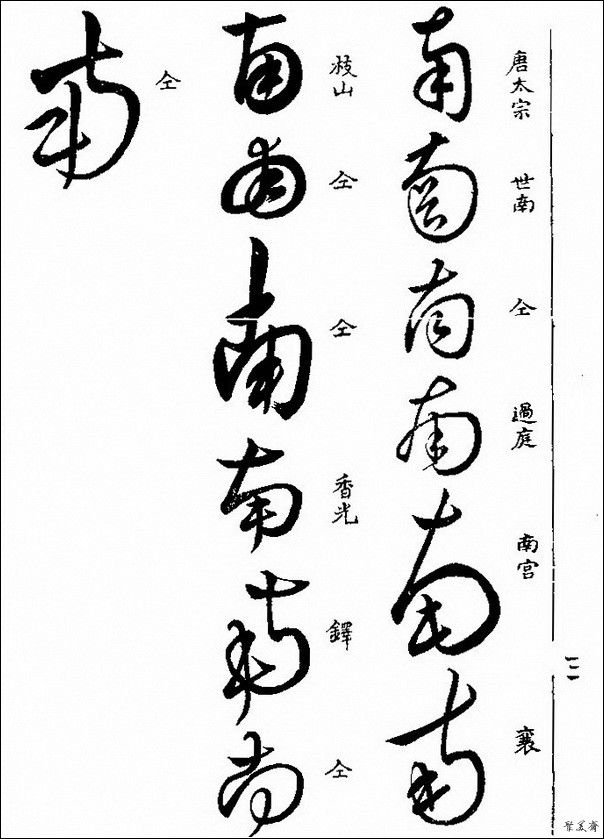 唐太宗
南
世南
南
仝
南
過庭
南
南宮
南
襄
南
枝山
南
仝
南
仝
南
香光
南
鐸
南
仝
南
仝
南